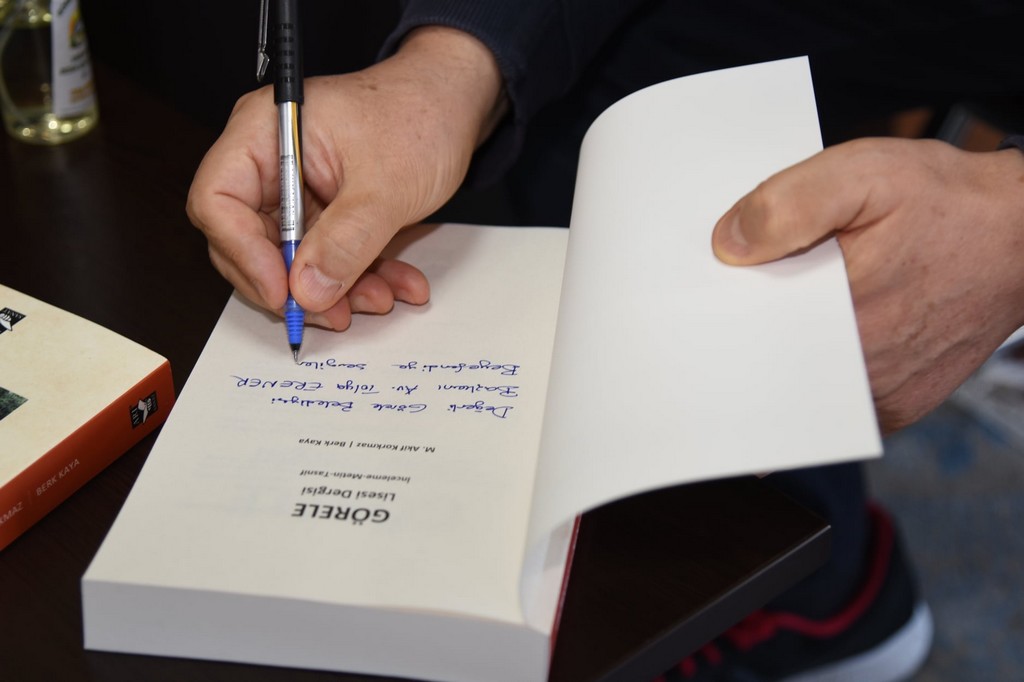 GÖRELE
Lisesi Dergisi
İnceleme-Metin-Tasnif
M. Akif Korkmaz | Berk Kaya
Değerli Görele Belediyesi
Başkanı Av. Tolga ERENER
Beyefendi'ye sevgiler
MAZ | BERK KAYA